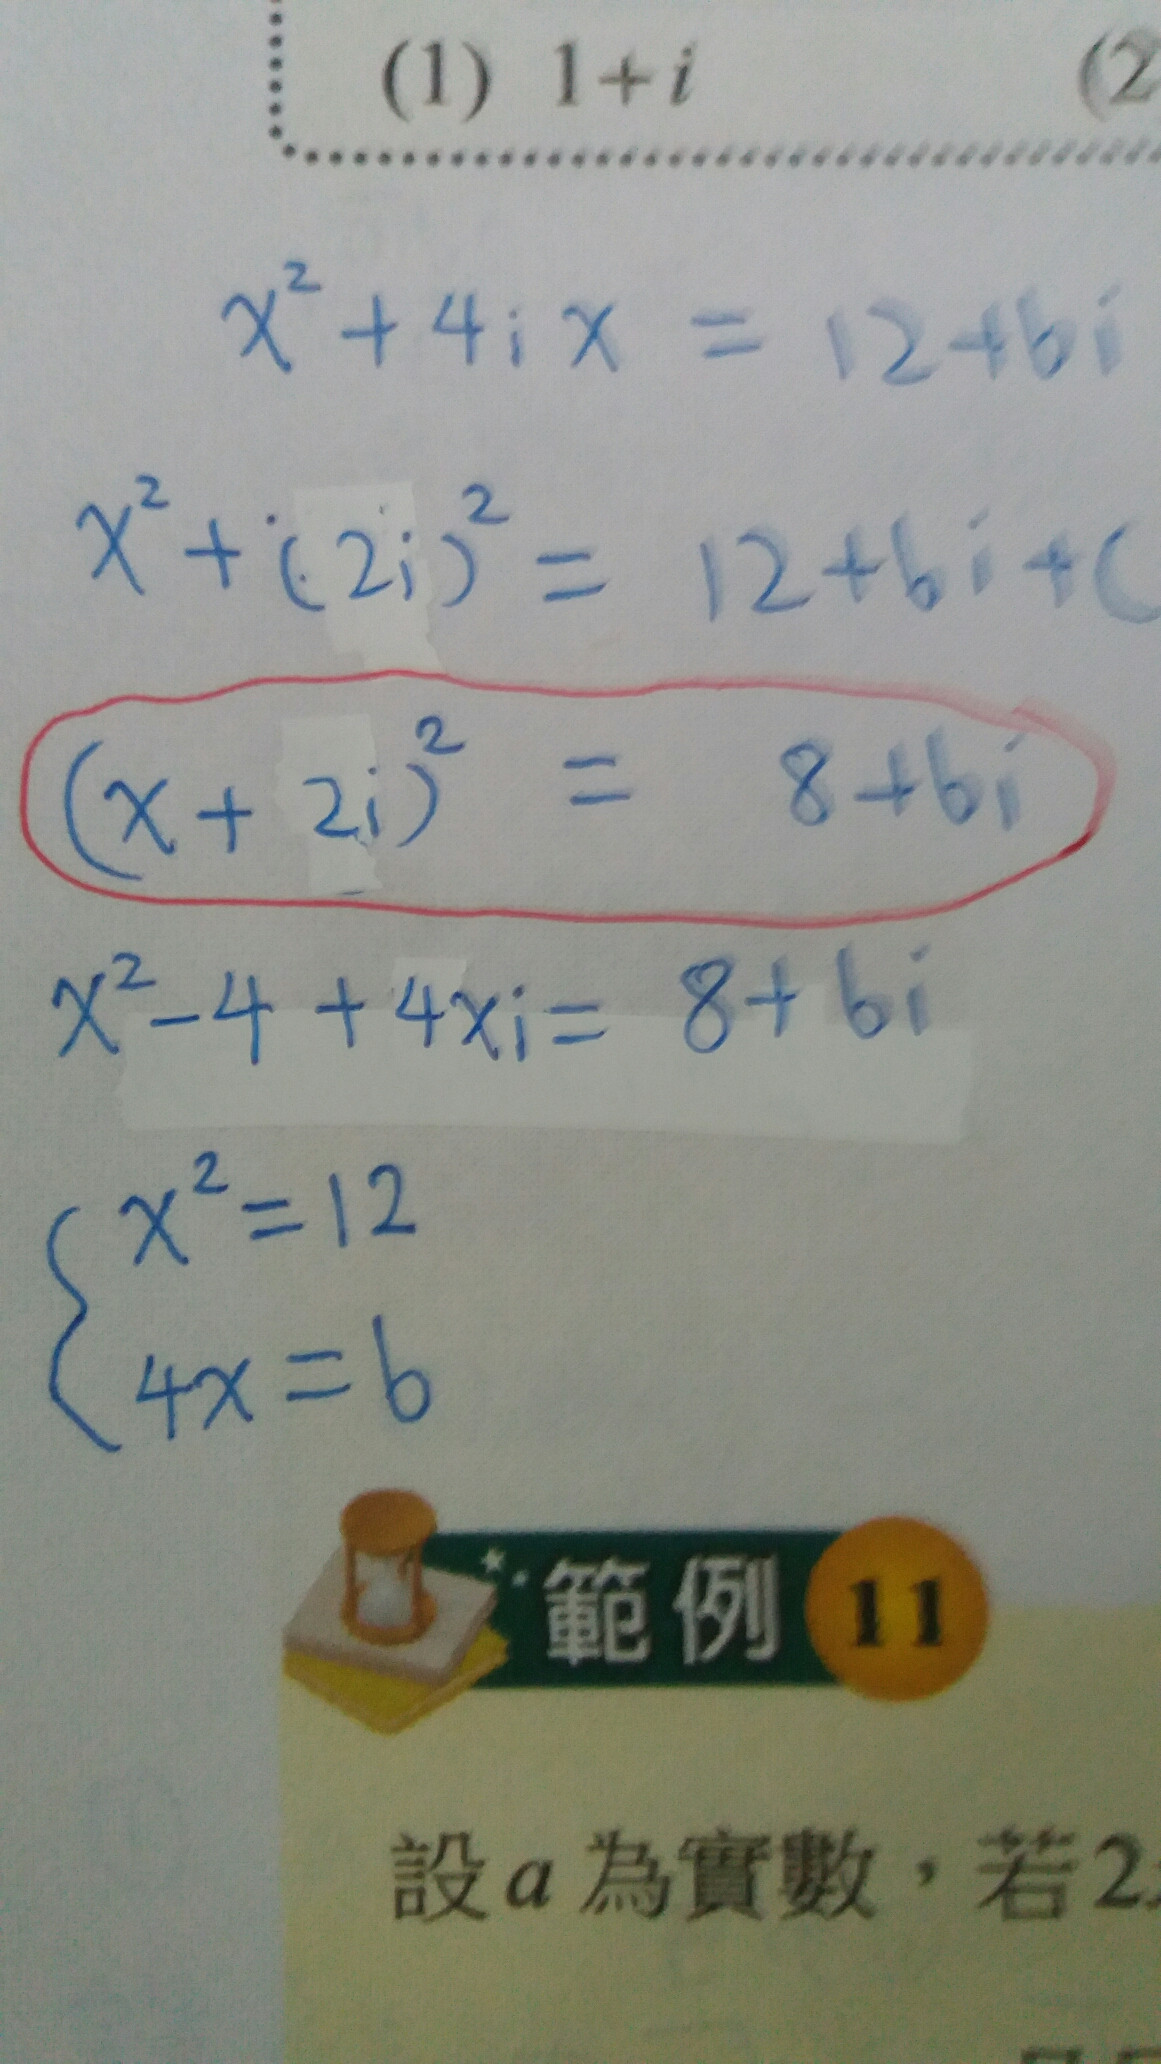 (1) 1+i (2
x² + 4ix = 12+bi
x² + (2i)² = 12+bi+(
(x + 2i)² = 8+bi
x² - 4 + 4xi = 8 + bi
{ x² = 12
4x = b
範例 11
設 a 為實數，若 2